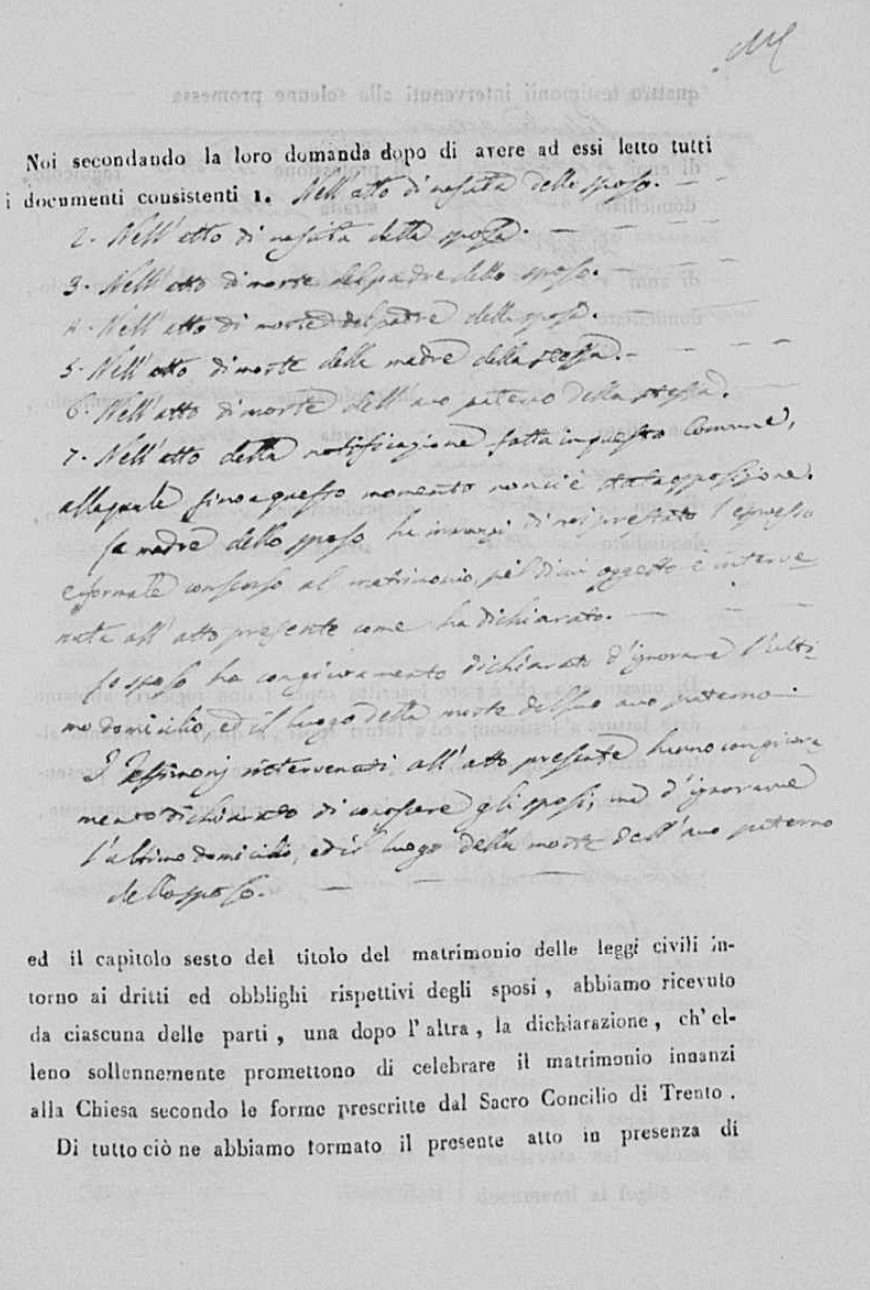 Noi secondando la loro domanda dopo di avere ad essi letto tutti
i documenti consistenti 1. Nell'atto di nascita dello sposo. — —
2. Nell'atto di nascita della sposa. — — — —
3. Nell'atto di morte del padre dello sposo. — — —
4. Nell'atto di morte del padre della sposa. — —
5. Nell'atto di morte della madre della stessa. — — — —
6. Nell'atto di morte dell'avo paterno della stessa. —
7. Nell'atto della notificazione fatta in questo Comune,
alla quale sino a questo momento non ci è stata opposizione.
La madre dello sposo ha innanzi di noi prestato l'espresso
e formale consenso al matrimonio, pel di cui oggetto è interve-
nuta all'atto presente come ha dichiarato. — — —
Lo sposo ha con giuramento dichiarato d'ignorare l'ulti-
mo domicilio, ed il luogo della morte del suo avo paterno. —
I Testimonj intervenuti all'atto presente hanno con giura-
mento dichiarato di conoscere gli sposi, ma d'ignorare
l'ultimo domicilio, ed il luogo della morte dell'avo paterno
dello sposo. — — —
ed il capitolo sesto del titolo del matrimonio delle leggi civili in-
torno ai dritti ed obblighi rispettivi degli sposi, abbiamo ricevuto
da ciascuna delle parti, una dopo l'altra, la dichiarazione, ch'el-
leno sollennemente promettono di celebrare il matrimonio innanzi
alla Chiesa secondo le forme prescritte dal Sacro Concilio di Trento.
Di tutto ciò ne abbiamo formato il presente atto in presenza di